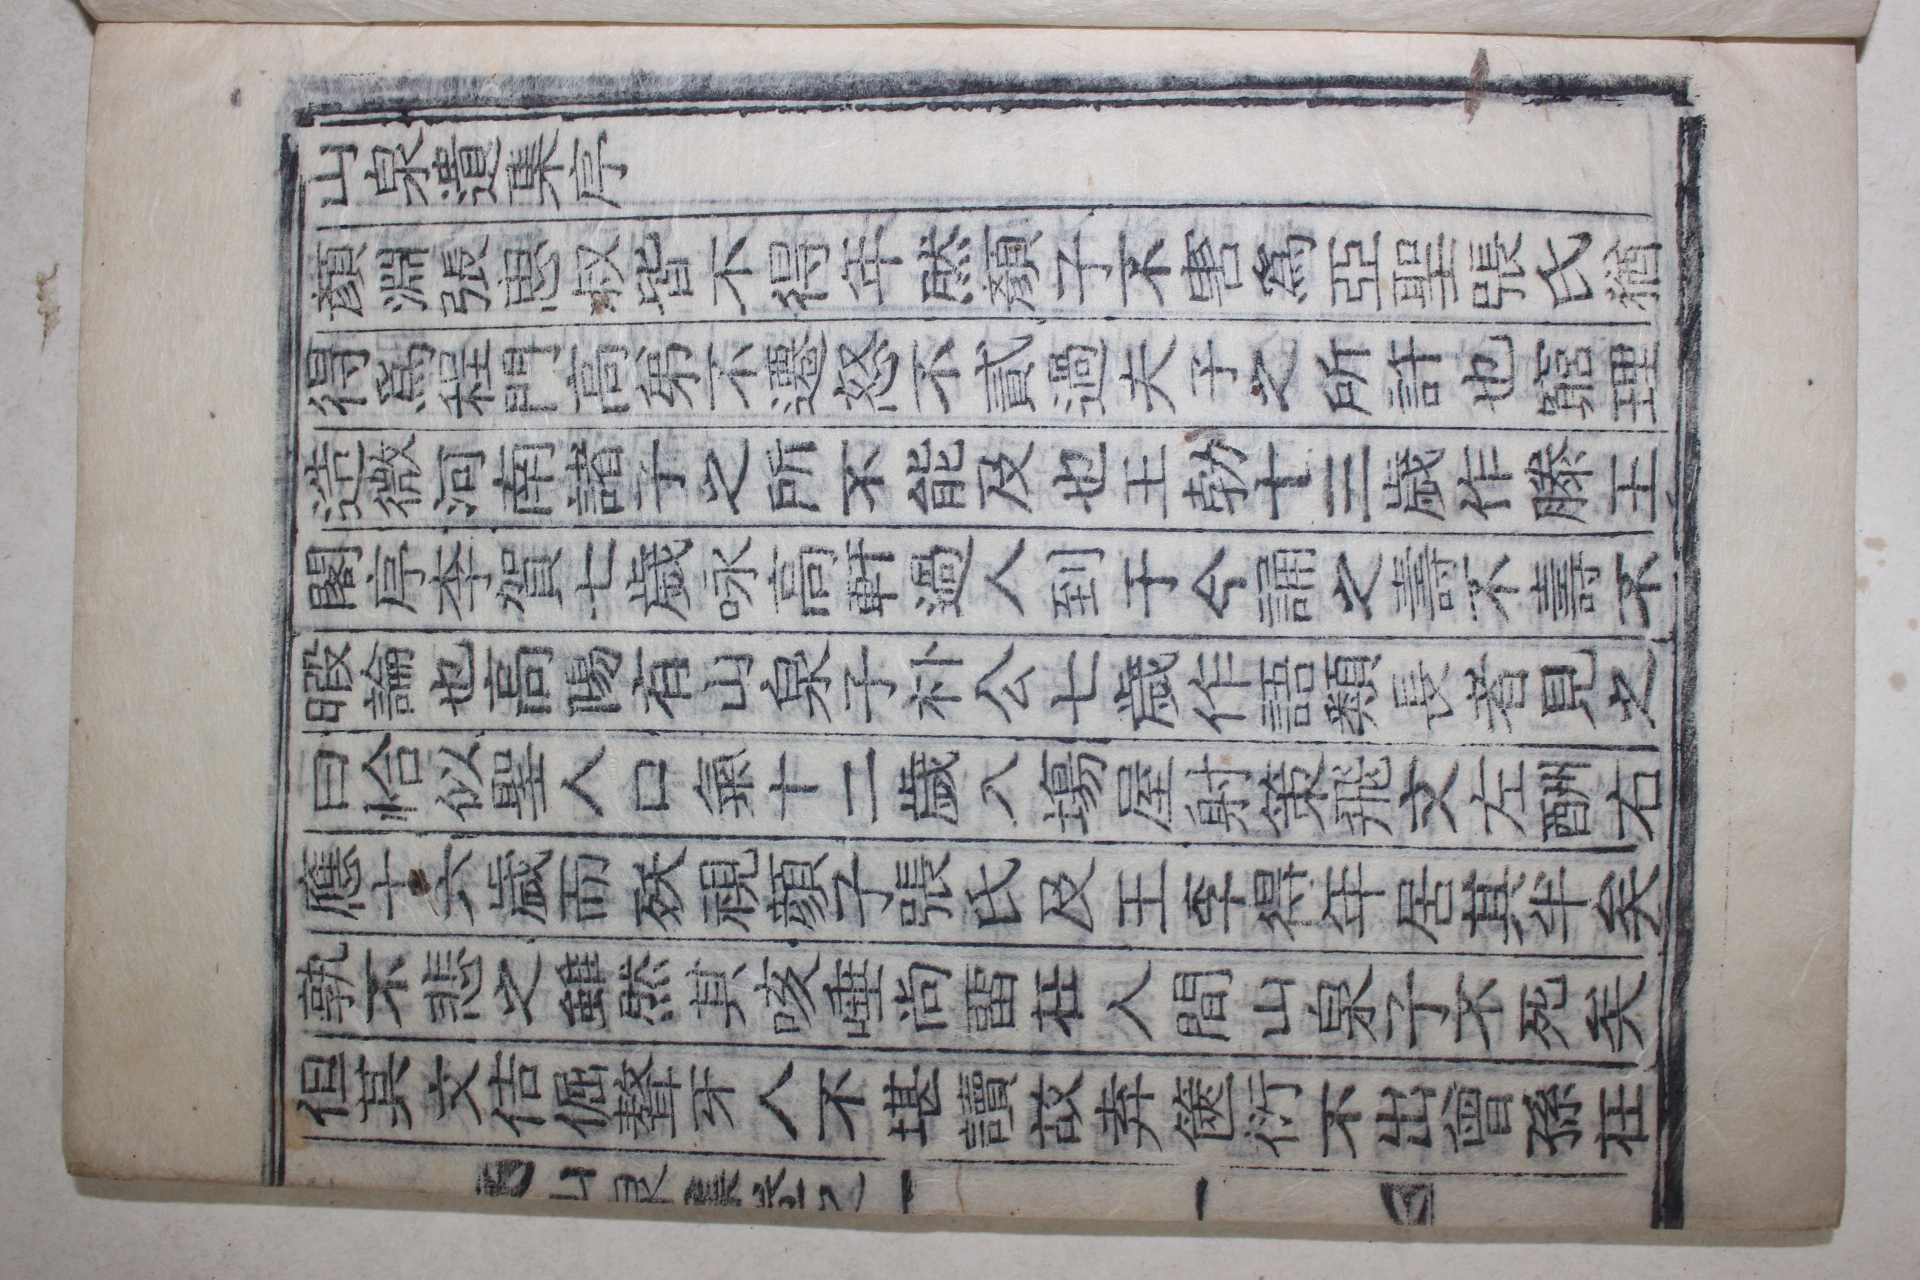 山泉遺集序
顔淵張思叔皆不得年然顔子不害爲亞聖張氏猶
得爲程門高弟不遷怒不貳過夫子之所許也窮理
造微河南諸子之所不能及也王勃十三歲作滕王
閣序李賀七歲咏高軒過人到于今誦之壽不壽不
暇論也高陽有山泉子朴公七歲作語類長者見之
曰恰似聖人口氣十二歲入場屋射策飛文左酬右
應十六歲而殀視顔子張氏及王李得年居其半矣
孰不悲之雖然其咳唾尙留在人間山泉子不死矣
但其文佶倔聱牙人不堪讀故弆篋衍不出曾孫在
山泉集卷之一 一